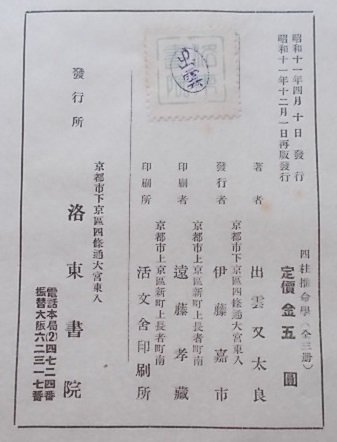 昭和十一年四月十日發行
昭和十一年十二月一日再版發行
四柱推命學(全三册)
定價金五圓
著者 出雲又太良
京都市下京區四條通大宮東入
發行者 伊藤嘉市
京都市上京區新町上長者町南
印刷者 遠藤孝藏
京都市上京區新町上長者町南
印刷所 活文舍印刷所
出雲
發行所
京都市下京區四條通大宮東入
洛東書院
電話本局(2)四七二四番
振替大阪六二三一七番